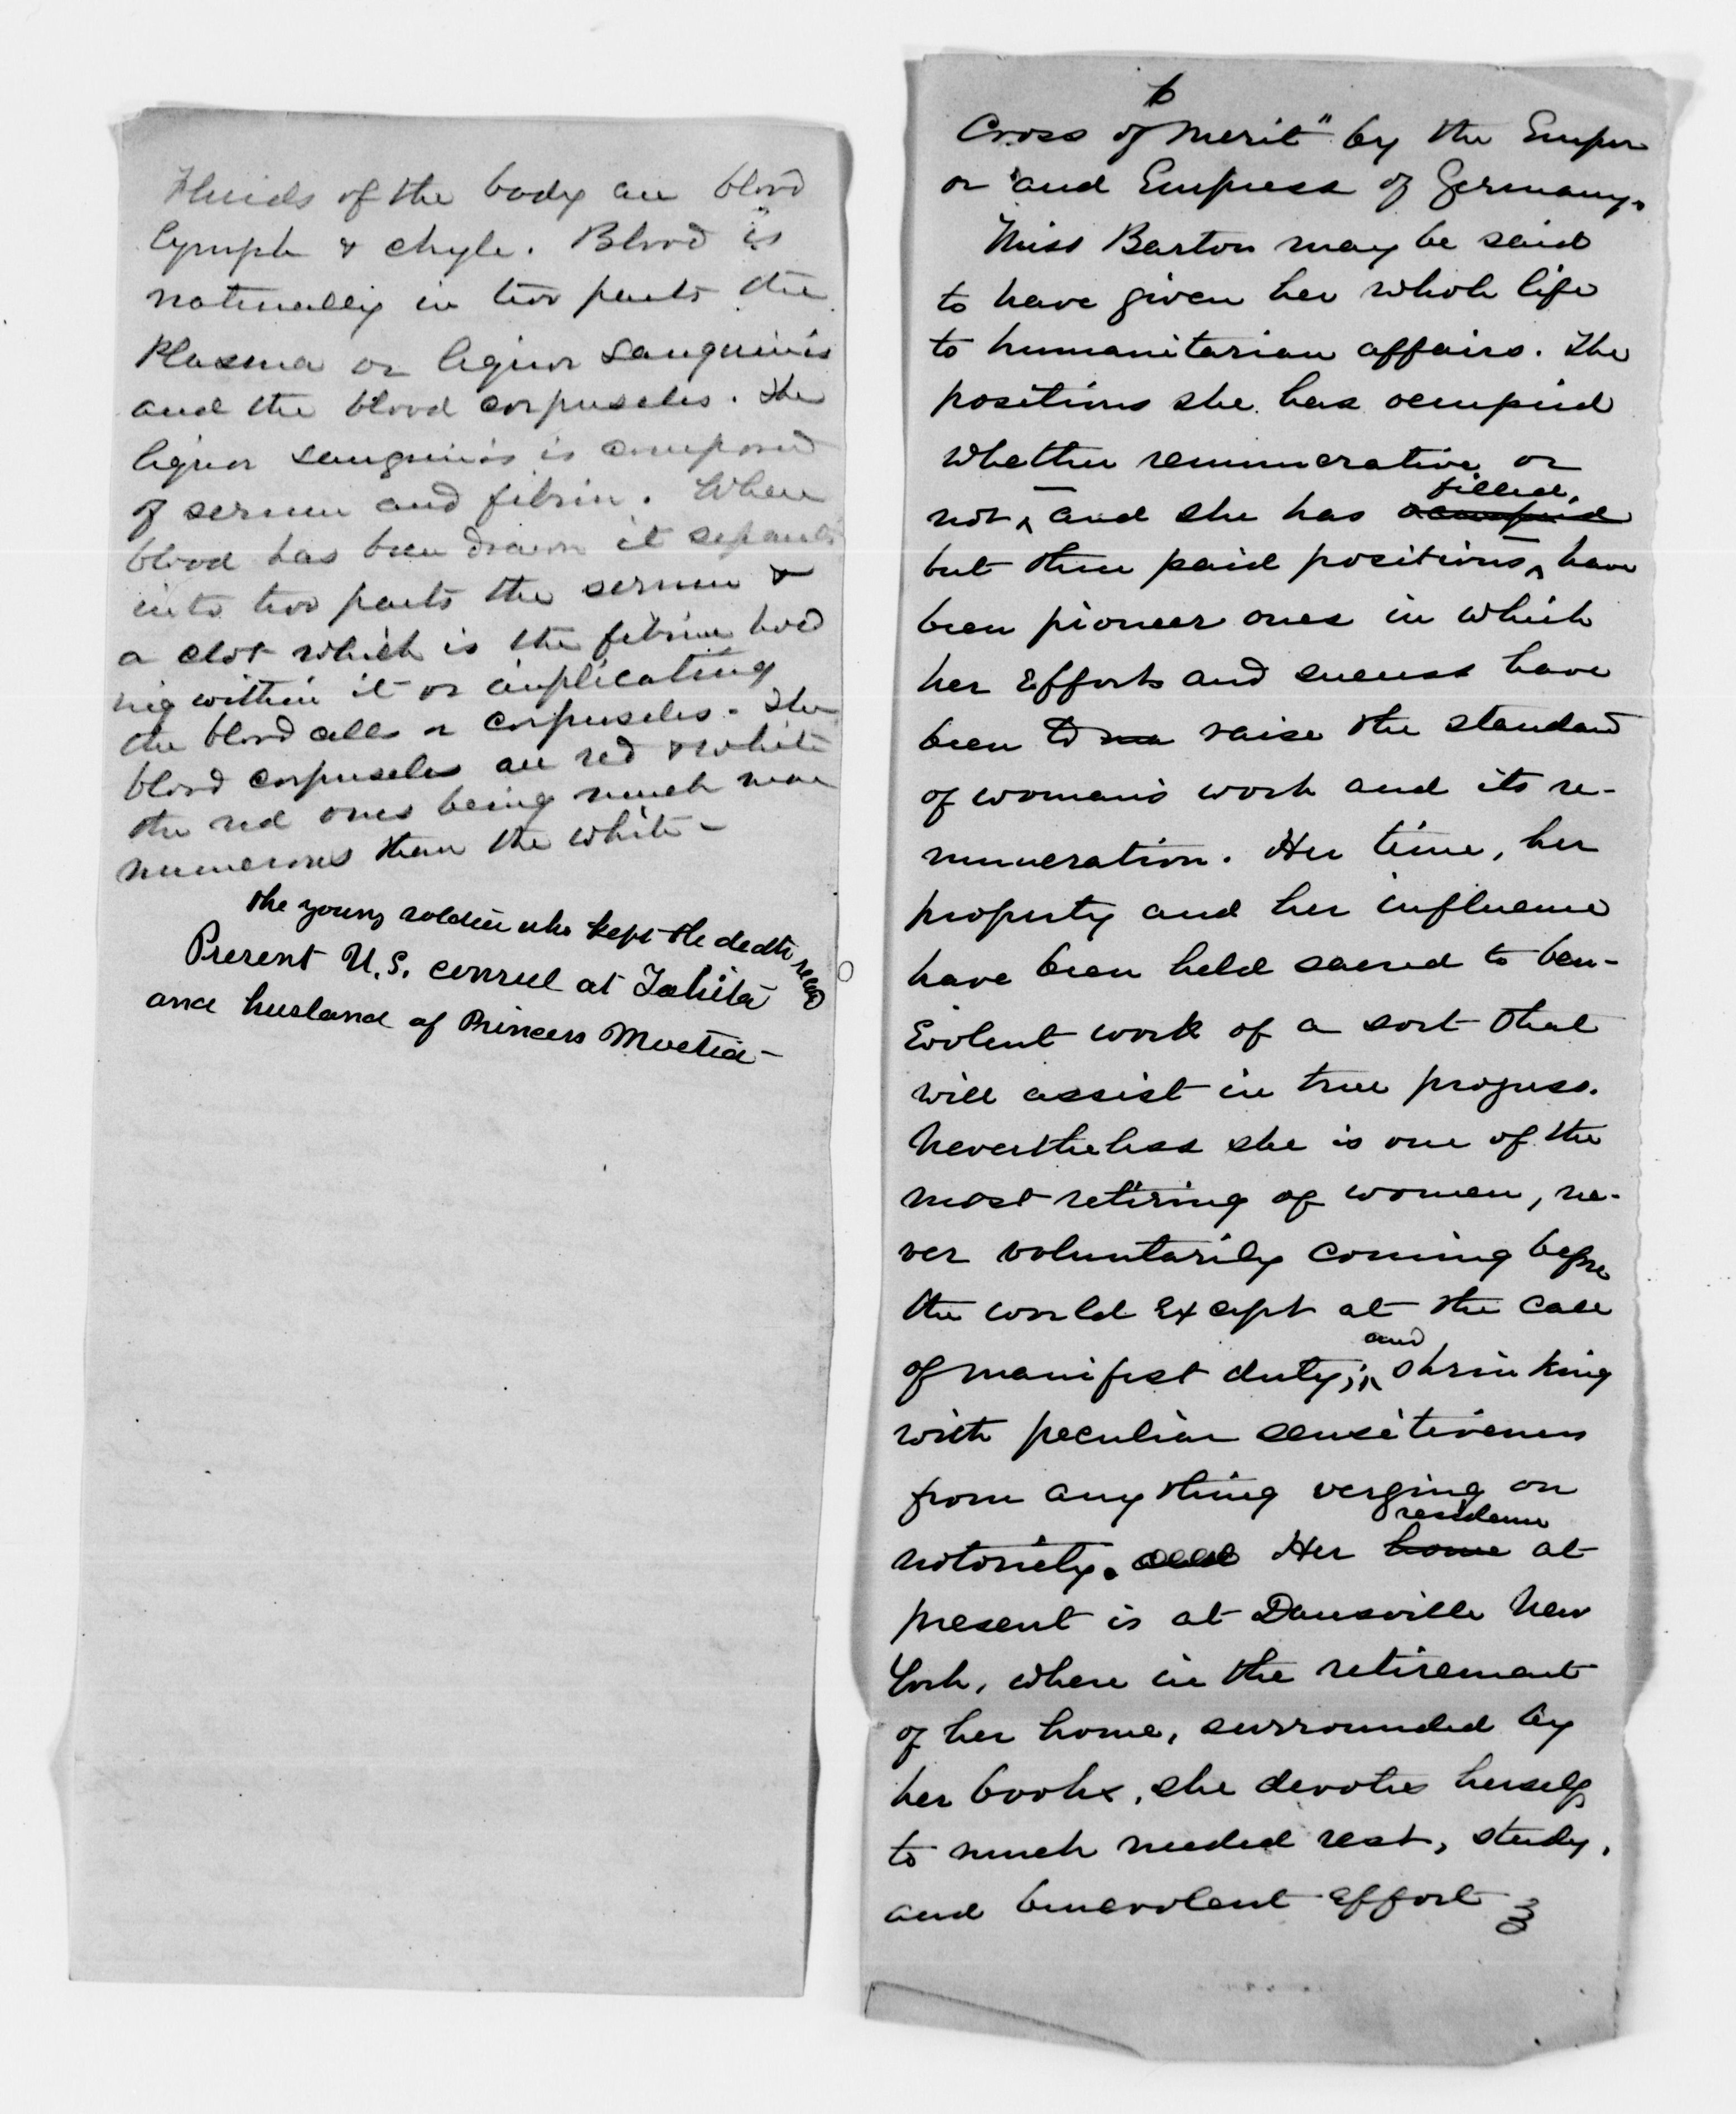 Fluids of the body are blood
lymph & chyle. Blood is
naturally in two parts the
Plasma or liquor sanguinis
and the blood corpuscles. The
liquor sanguinis is composed
of serum and fibrin. When
blood has been drawn it separates
into two parts the serum &
a clot which is the fibrin hold
ing within it or implicating
the blood cells or corpuscles. The
blood corpuscles are red & white
the red ones being much more
numerous than the white –
the young soldier who kept the death record
Present U.S. consul at Tahita
and husband of Princess Moetia –
6
Cross of Merit" by the Emper
or and Empress of Germany.
Miss Barton may be said
to have given her whole life
to humanitarian affairs. The
positions she has occupied
whether remunerative or
filled,
not ^ and she has occupied
but three paid positions ^ have
been pioneer ones in which
her efforts and success have
been to raise the standard
of woman's work and its re-
muneration. Her time, her
property and her influence
have been held sacred to ben-
evolent work of a sort that
will assist in true progress.
Nevertheless she is one of the
most retiring of women, ne-
ver voluntarily coming before
the world except at the call
and
of manifest duty; ^ shrinking
with peculiar sensitiveness
from any thing verging on
residence
notoriety. Her home at
present is at Dansville New
York, where in the retirement
of her home, surrounded by
her books, she devotes herself
to much needed rest, study,
and benevolent effort